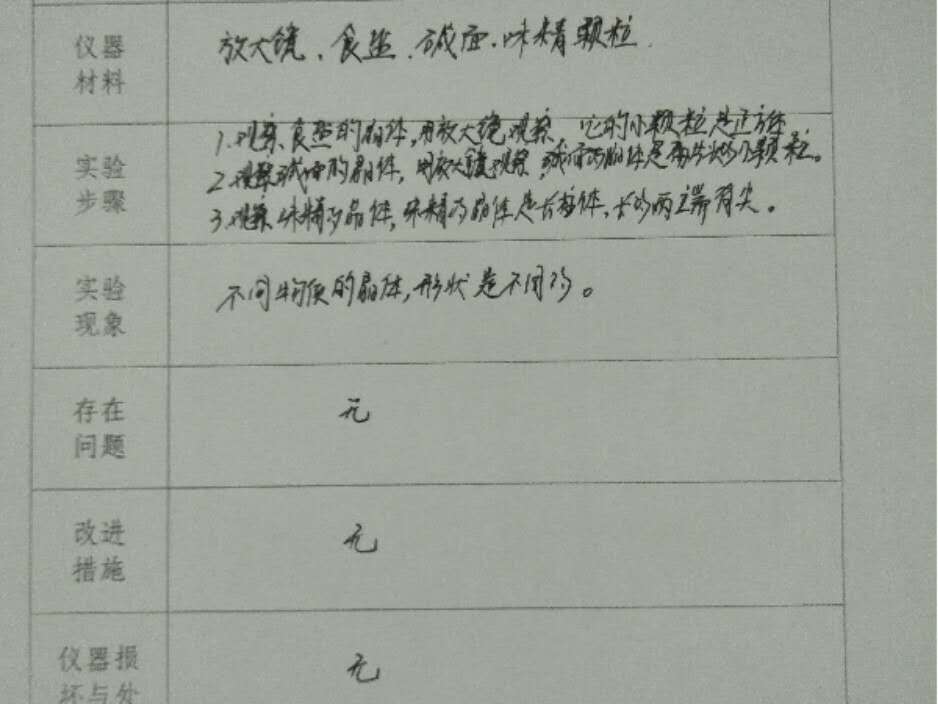 仪器
材料
放大镜、食盐、碱面、味精颗粒.
实验
步骤
1.观察食盐的晶体,用放大镜观察,它的小颗粒是正方体
2.观察碱面的晶体,用放大镜观察,碱面的晶体是小颗粒。
3.观察味精的晶体,味精的晶体是长柱体、两端有尖。
实验
现象
不同物质的晶体,形状是不同的。
存在
问题
无
改进
措施
无
仪器损
坏与处
无